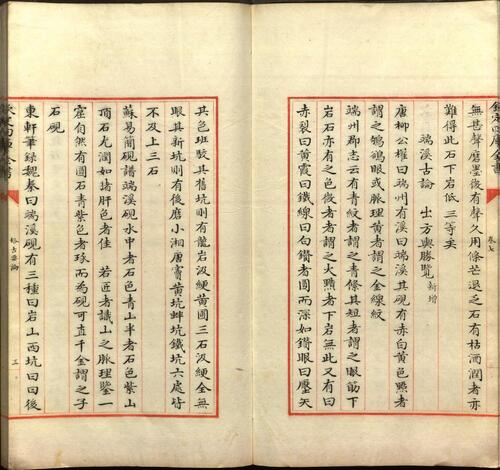 欽定四庫全書
卷七
無甚聲磨墨後有聲久用條芒退乏石有枯酒潤者亦
難得此石下岩低三等矣
端溪古論 出方輿勝覽新增
唐柳公權曰端州有溪曰端溪其硯有赤白黄色㸃者
謂之鸲鵒眼或脈理黄者謂之金線紋
端州郡志云有青紋者謂之青條其短者謂之眼筋下
岩石亦有之色微者者謂之火黯者下岩無此又有曰
赤裂曰黄霞曰鐵線曰白鑚者圓而深如鑚眼曰壓矢
其色班駁其舊坑則有龍岩汲綆黄圓三石汲綆全無
眼其新坑則有後磨小湘唐竇黄坑蚌坑鐵坑六處皆
不及上三石
蘇易簡硯譜端溪硯水中者石色青山半者石色紫山
頂石尤潤如猪肝色者佳 若匠者識山之脈理鑿一
窟自然有圓石青紫色者琢而為硯可直千金謂之子
石硯
東軒筆録魏泰曰端溪硯有三種曰岩山西坑曰曰後
欽定四庫全書
格古要論
三